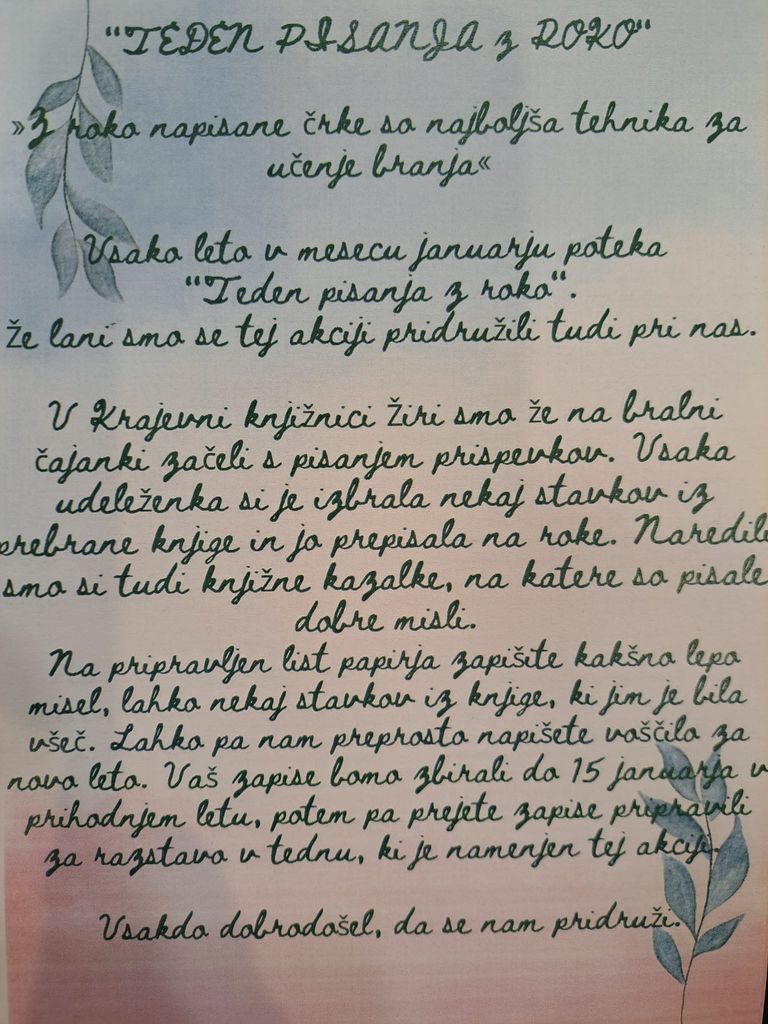 "TEDEN PISANJA z ROKO"
»Z roko napisane črke so najboljša tehnika za
učenje branja«
Vsako leto v mesecu januarju poteka
"Teden pisanja z roko".
Že lani smo se tej akciji pridružili tudi pri nas.
V Krajevni knjižnici Žiri smo že na bralni
čajanki začeli s pisanjem prispevkov. Vsaka
udeleženka si je izbrala nekaj stavkov iz
prebrane knjige in jo prepisala na roke. Naredili
smo si tudi knjižne kazalke, na katere so pisale
dobre misli.
Na pripravljen list papirja zapišite kakšno lepo
misel, lahko nekaj stavkov iz knjige, ki jim je bila
všeč. Lahko pa nam preprosto napišete voščilo za
novo leto. Vaš zapise bomo zbirali do 15 januarja v
prihodnjem letu, potem pa prejete zapise pripravili
za razstavo v tednu, ki je namenjen tej akciji.
Vsakdo dobrodošel, da se nam pridruži.